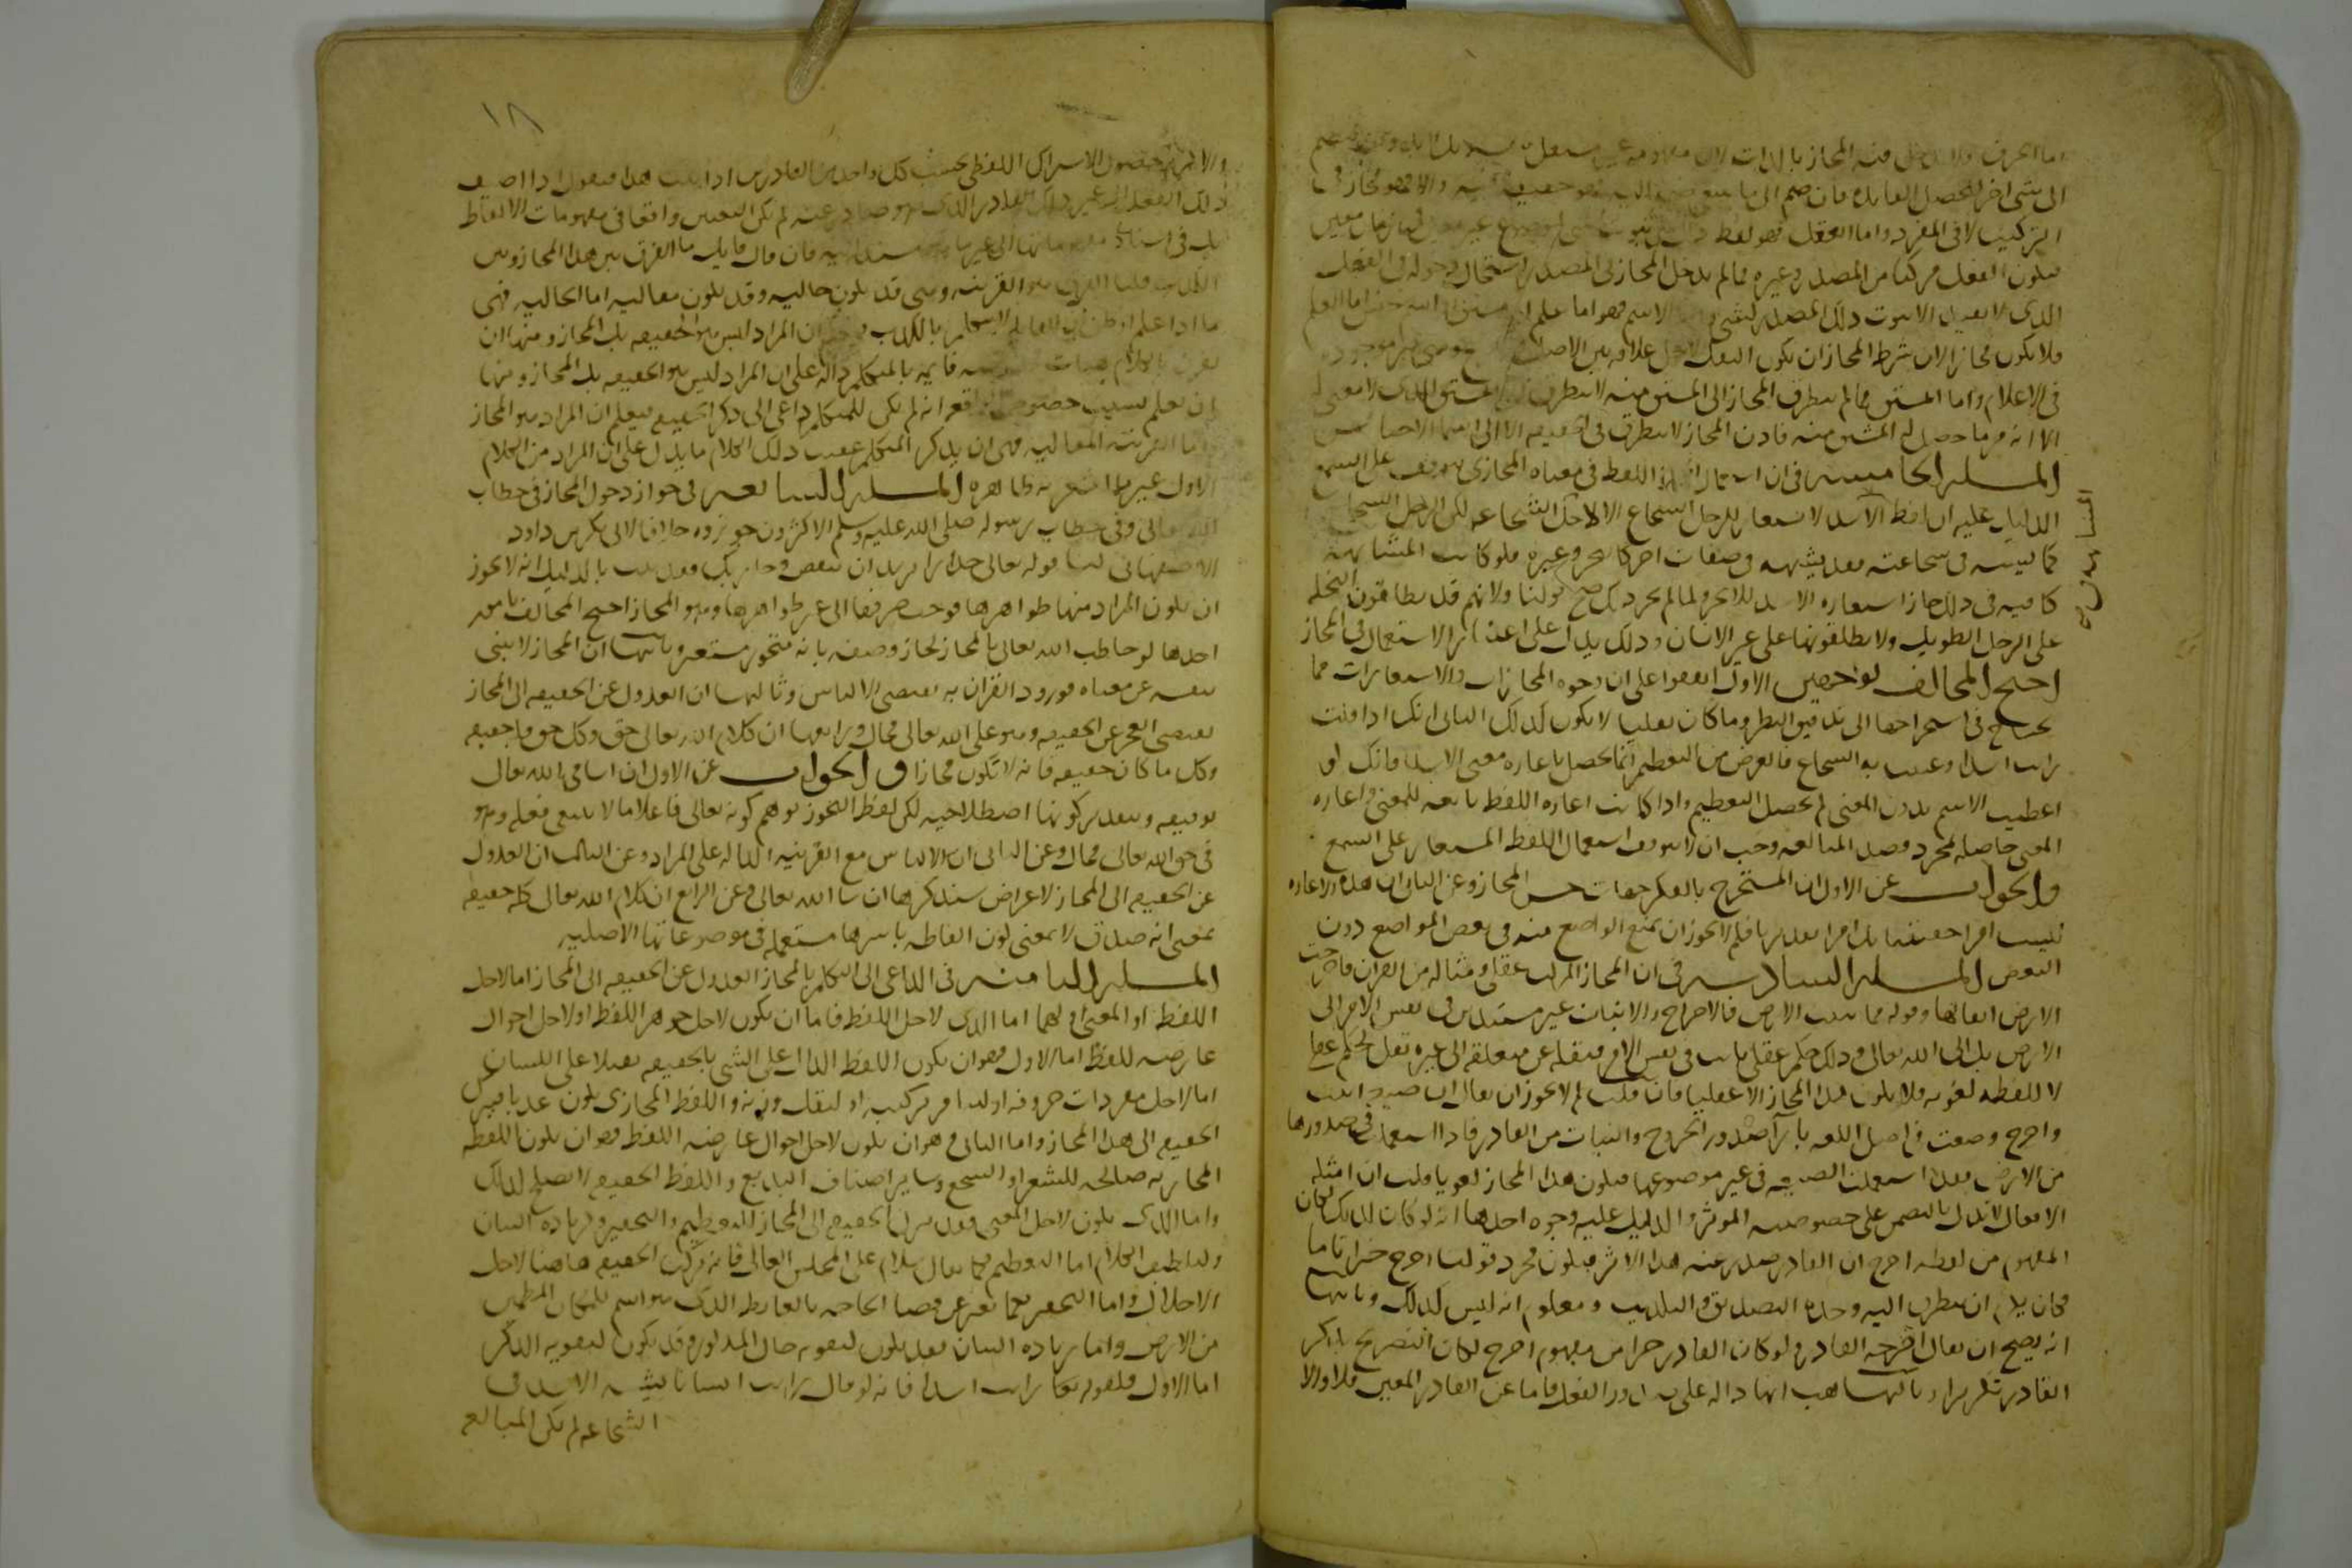 اما الحرف فلا يدخل فيه المجاز بالذات لان مفهومه غير مستقل
الى شى اخر لتحصل الفايده فان ضم الى ما ينبغى ضمه اليه فهو حقيقة فيه والا فهو مجاز فى
التركيب لا فى المفرد واما الفعل فهو لفظ دال على ثبوت شى لموضوع غير معين فى زمان معين
فيكون الفعل مركبا من المصدر وغيره فما لم يدخل المجاز فى المصدر استحال دخوله فى الفعل
الذى لا يفيد الا ثبوت ذلك المصدر لشى واما الاسم فهو اما علم او مشتق او اسم جنس اما العلم
فلا يكون مجازا لان شرط المجاز ان يكون النقل لاجل علاقه بين الاصل وهى غير موجوده
فى الاعلام واما المشتق فما لم يتطرق المجاز الى المشتق منه لا يتطرق الى المشتق الذى لا معنى له
الا انه امر ما حصل له المشتق منه فاذن المجاز لا يتطرق فى الحقيقه الا الى اسما الاجناس
المسله الخامسه فى ان استعمال اللفظ فى معناه المجازى يتوقف على السمع
الدليل عليه ان لفظ الاسد لا يستعار للرجل الشجاع الا لاجل الشجاعه لكن الرجل الشجاع
كما يشبهه فى شجاعته فقد يشبهه فى صفات اخر كالبخر وغيره فلو كانت المشابهه
كافيه فى ذلك لجاز استعاره الاسد للابخر ولما لم يجز ذلك صح قولنا ولانهم قد يطلقون النخله
على الرجل الطويل ولا يطلقونها على غير الانسان وذلك يدل على اعتبار الاستعمال فى المجاز
احتج المخالف بوجهين الاول اتفقوا على ان وجوه المجازات والاستعارات مما
يحتاج فى استخراجها الى تدقيق النظر وما كان نقليا لا يكون كذلك الثانى انك اذا قلت
رايت اسدا وعنيت به الشجاع فالغرض من التعظيم انما يحصل باعاره معنى الاسد فانك لو
اعطيت الاسم بدون المعنى لم يحصل التعظيم واذا كانت اعاره اللفظ تابعه للمعنى واعاره
المعنى حاصله لمجرد قصد المبالغه وجب ان لا يتوقف استعمال اللفظ المستعار على السمع
والجواب عن الاول ان المستخرج بالفكر جهات حسن المجاز وعن الثانى ان هذه الاعاره
ليست امرا حقيقيا بل امرا تقديريا فلم لا يجوز ان يمنع الواضع منه فى بعض المواضع دون
البعض المسله السادسه فى ان المجاز المركب عقلى ومثاله من القران واخرجت
الارض اثقالها وقوله مما تنبت الارض فالاخراج والانبات غير مستندين فى نفس الامر الى
الارض بل الى الله تعالى وذلك حكم عقلى ثابت فى نفس الامر فنقله عن متعلقه الى غيره نقل لحكم عقلى
لا للفظه لغويه فلا يكون هذا المجاز الا عقليا فان قلت لم لا يجوز ان يقال ان صيغه انبت
واخرج وضعت فى اصل اللغه بازا صدور الخروج والنبات من القادر فاذا استعملت فى صدورها
من الارض فقد استعملت الصيغه فى غير موضوعها فيكون هذا المجاز لغويا قلت ان امثله
الافعال لا تدل بالتضمن على خصوصيه الموثر والدليل عليه وجوه احدها انه لو كان كذلك لكان
المفهوم من لفظه اخرج ان القادر صدر عنه هذا الاثر فيكون مجرد قولنا اخرج خبرا تاما
فكان يلزم ان يتطرق اليه وحده التصديق والتكذيب ومعلوم انه ليس كذلك وثانيها
انه يصح ان يقال اخرجه القادر ولو كان القادر جزا من مفهوم اخرج لكان التصريح بذكر
القادر تكريرا وثالثها هب انها داله على صدور الفعل فاما عن القادر المعين فلا والا
السابع
١٨
والا لزم حصول الاشتراك اللفظى بحسب كل واحد من القادرين اذا ثبت هذا فنقول اذا اضيف
ذلك الفعل الى غير ذلك القادر الذى هو صادر عنه لم يكن التغيير واقعا فى مفهومات الالفاظ
بل فى اسناد مفهوماتها الى غير ما هو مستند اليه فان قال قايل ما الفرق بين هذا المجاز وبين
الكذب قلنا الفرق هو القرينه وهى قد تكون حاليه وقد تكون مقاليه اما الحاليه فهى
ما اذا علم او ظن ان القايل لا يتكلم بالكذب فيعلم ان المراد ليس هو الحقيقه بل المجاز ومنها ان
يقترن بالكلام هيات مخصوصه قايمه بالمتكلم داله على ان المراد ليس هو الحقيقه بل المجاز ومنها
ان يعلم بسبب خصوص الواقعه انه لم يكن للمتكلم داعى الى ذكر الحقيقه فيعلم ان المراد هو المجاز
واما القرينه المقاليه فهى ان يذكر المتكلم عقيب ذلك الكلام ما يدل على ان المراد من الكلام
الاول غير ما اشعر به ظاهره المسله السابعه فى جواز دخول المجاز فى خطاب
الله تعالى وفى خطاب رسوله صلى الله عليه وسلم الاكثرون جوزوه خلافا لابى بكر بن داود
الاصفهانى لنا قوله تعالى جدارا يريد ان ينقض وجا ربك وقد ثبت بالدليل انه لا يجوز
ان يكون المراد منها ظواهرها فوجب صرفها الى غير ظواهرها وهو المجاز احتج المخالف بامور
احدها لو خاطب الله تعالى بالمجاز لجاز وصفه بانه متجوز مستعير وثانيها ان المجاز لا ينبى
بنفسه عن معناه فورود القران به يقتضى الالتباس وثالثها ان العدول عن الحقيقه الى المجاز
يقتضى العجز عن الحقيقه وهو على الله تعالى محال ورابعها ان كلام الله تعالى حق وكل حق فله حقيقه
وكل ما كان حقيقه فانه لا يكون مجازا والجواب عن الاول ان اسامى الله تعالى
توقيفيه وبتقدير كونها اصطلاحيه لكن لفظ التجوز يوهم كونه تعالى فاعلا ما لا ينبغى فعله وهو
فى حق الله تعالى محال وعن الثانى ان لا التباس مع القرينه الداله على المراد وعن الثالث ان العدول
عن الحقيقه الى المجاز لاغراض سنذكرها ان شا الله تعالى وعن الرابع ان كلام الله تعالى كله حقيقه
بمعنى انه صدق لا بمعنى كون الفاظه باسرها مستعمله فى موضوعاتها الاصليه
المسله الثامنه فى الداعى الى التكلم بالمجاز العدول عن الحقيقه الى المجاز اما لاجل
اللفظ او المعنى او لهما اما الذى لاجل اللفظ فاما ان يكون لاجل جوهر اللفظ او لاجل احوال
عارضه للفظ اما الاول فهو ان يكون اللفظ الدال على الشى بالحقيقه ثقيلا على اللسان
اما لاجل مفردات حروفه او لتنافر تركيبه او لثقل وزنه واللفظ المجازى يكون عذبا فيترك
الحقيقه الى هذا المجاز واما الثانى فهو ان يكون لاجل احوال عارضه اللفظ فهو ان يكون اللفظه
المجازيه صالحه للشعر او السجع وساير اصناف البديع واللفظ الحقيقه لا تصلح لذلك
واما الذى يكون لاجل المعنى فقد تترك الحقيقه الى المجاز للتعظيم والتحقير ولزياده البيان
ولتلطيف الكلام اما التعظيم فكما يقال سلام على المجلس العالى فانه تركت الحقيقه هاهنا لاجل
الاجلال واما التحقير فكما يعبر عن قضا الحاجه بالغايط الذى هو اسم للمكان المطمين
من الارض واما زياده البيان فقد يكون لتقويه حال المذكور وقد يكون لتقويه الذكر
اما الاول فكقولهم رايت اسدا فانه لو قال رايت انسانا يشبه الاسد فى
الشجاعه لم يكن المبالغه